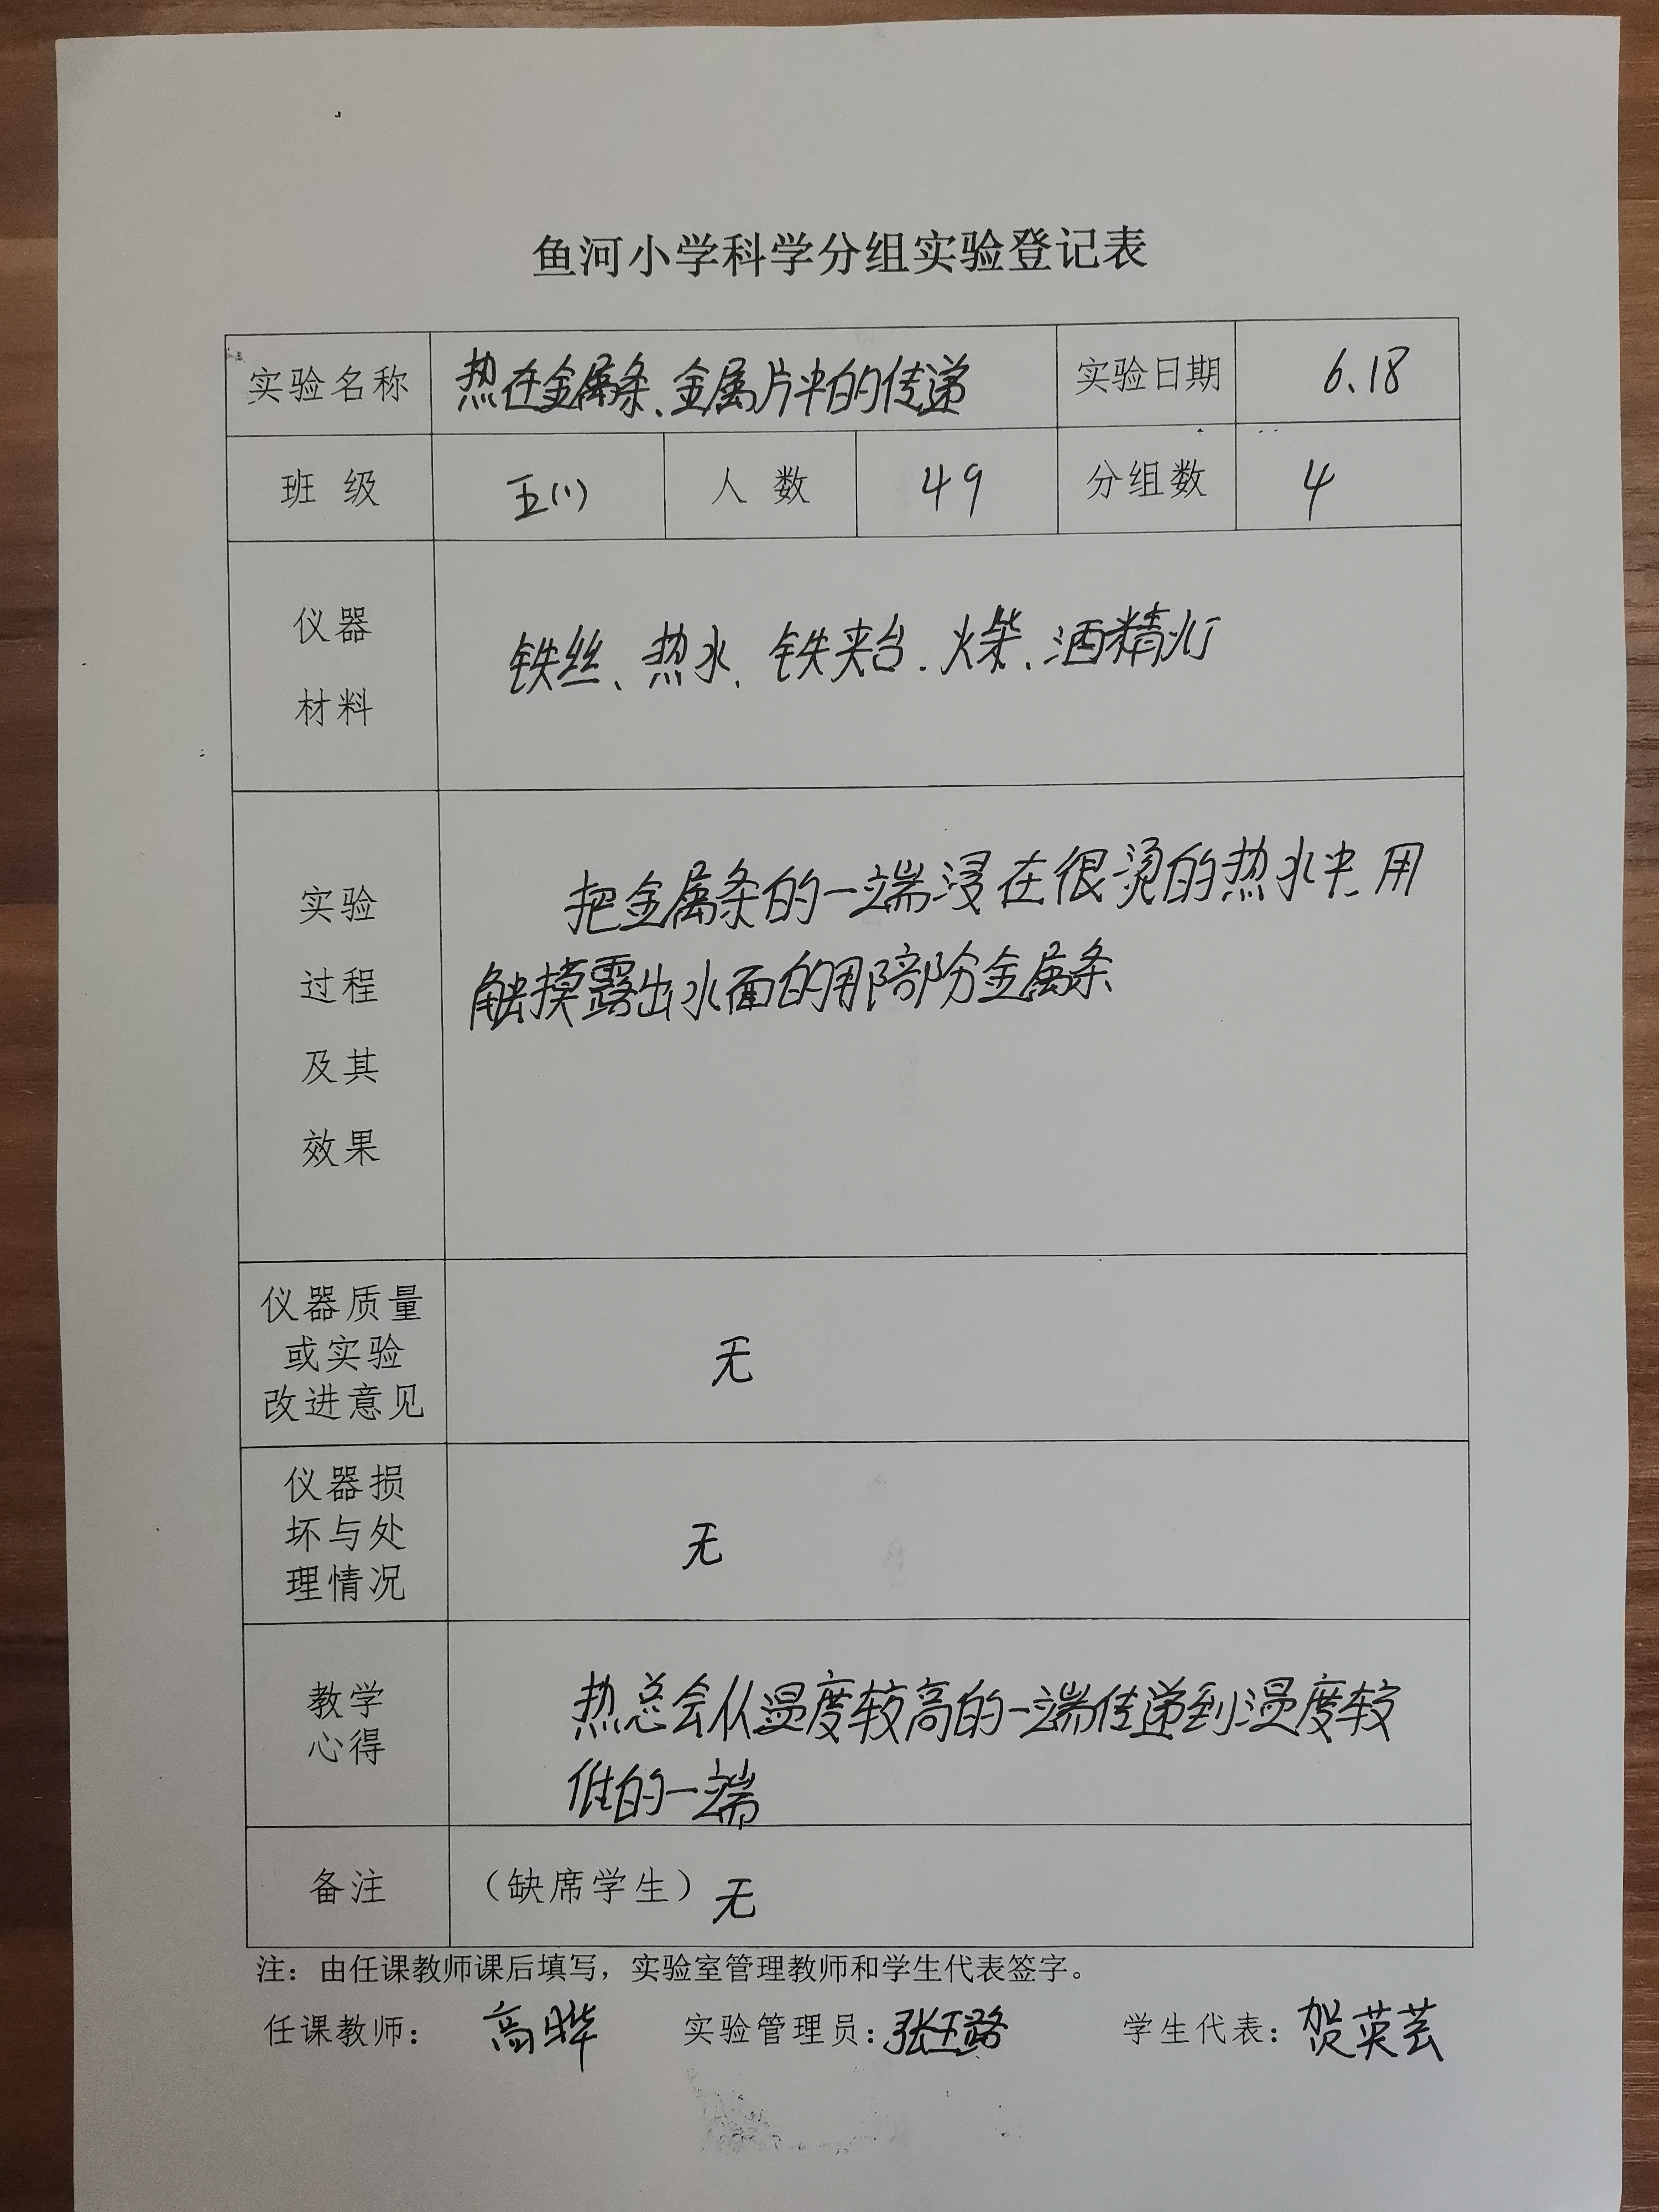 鱼河小学科学分组实验登记表
实验名称 热在金属条、金属片中的传递 实验日期 6.18
班 级 五(1) 人 数 49 分组数 4
仪器
材料
铁丝、热水、铁夹台、火柴、酒精灯
实验
过程
及其
效果
把金属条的一端浸在很烫的热水中,用
触摸露出水面的那部分金属条
仪器质量
或实验
改进意见
无
仪器损
坏与处
理情况
无
教学
心得
热总会从温度较高的一端传递到温度较
低的一端
备注 （缺席学生）无
注：由任课教师课后填写，实验室管理教师和学生代表签字。
任课教师： 高晔 实验管理员：张玉路 学生代表：贺英芸